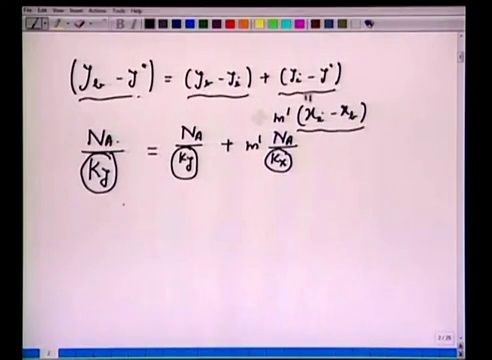 File Edit View Insert Actions Tools Help
(y_b - y*) = (y_b - y_i) + (y_i - y*)
m' (x_i - x_b)
N_A / K_y = N_A / k_y + m' N_A / k_x
2 / 25
2